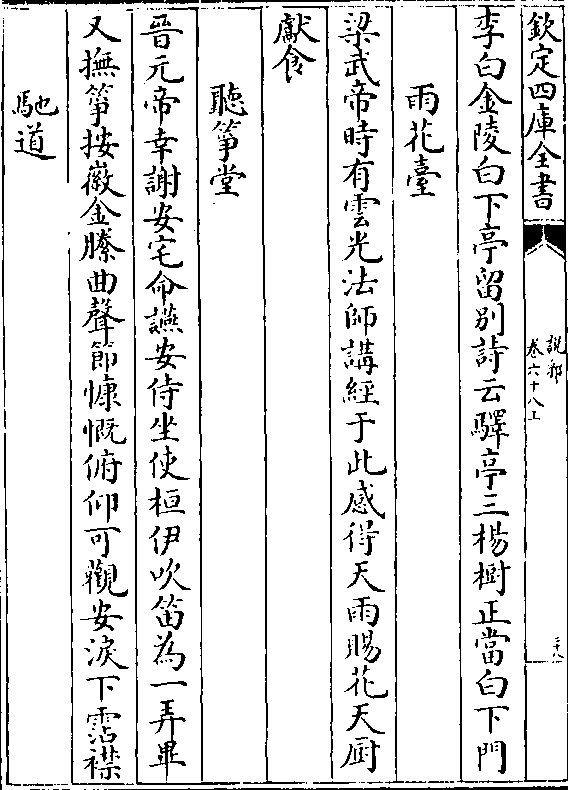 欽定四庫全書
說郛
卷六十八上
二十八
李白金陵白下亭留别詩云驛亭三楊樹正當白下門
雨花臺
梁武帝時有雲光法師講經于此感得天雨賜花天厨
獻食
聽箏堂
晉元帝幸謝安宅命讌安侍坐使桓伊吹笛為一弄畢
又撫箏按徽金縢曲聲節慷慨俯仰可觀安淚下霑襟
馳道